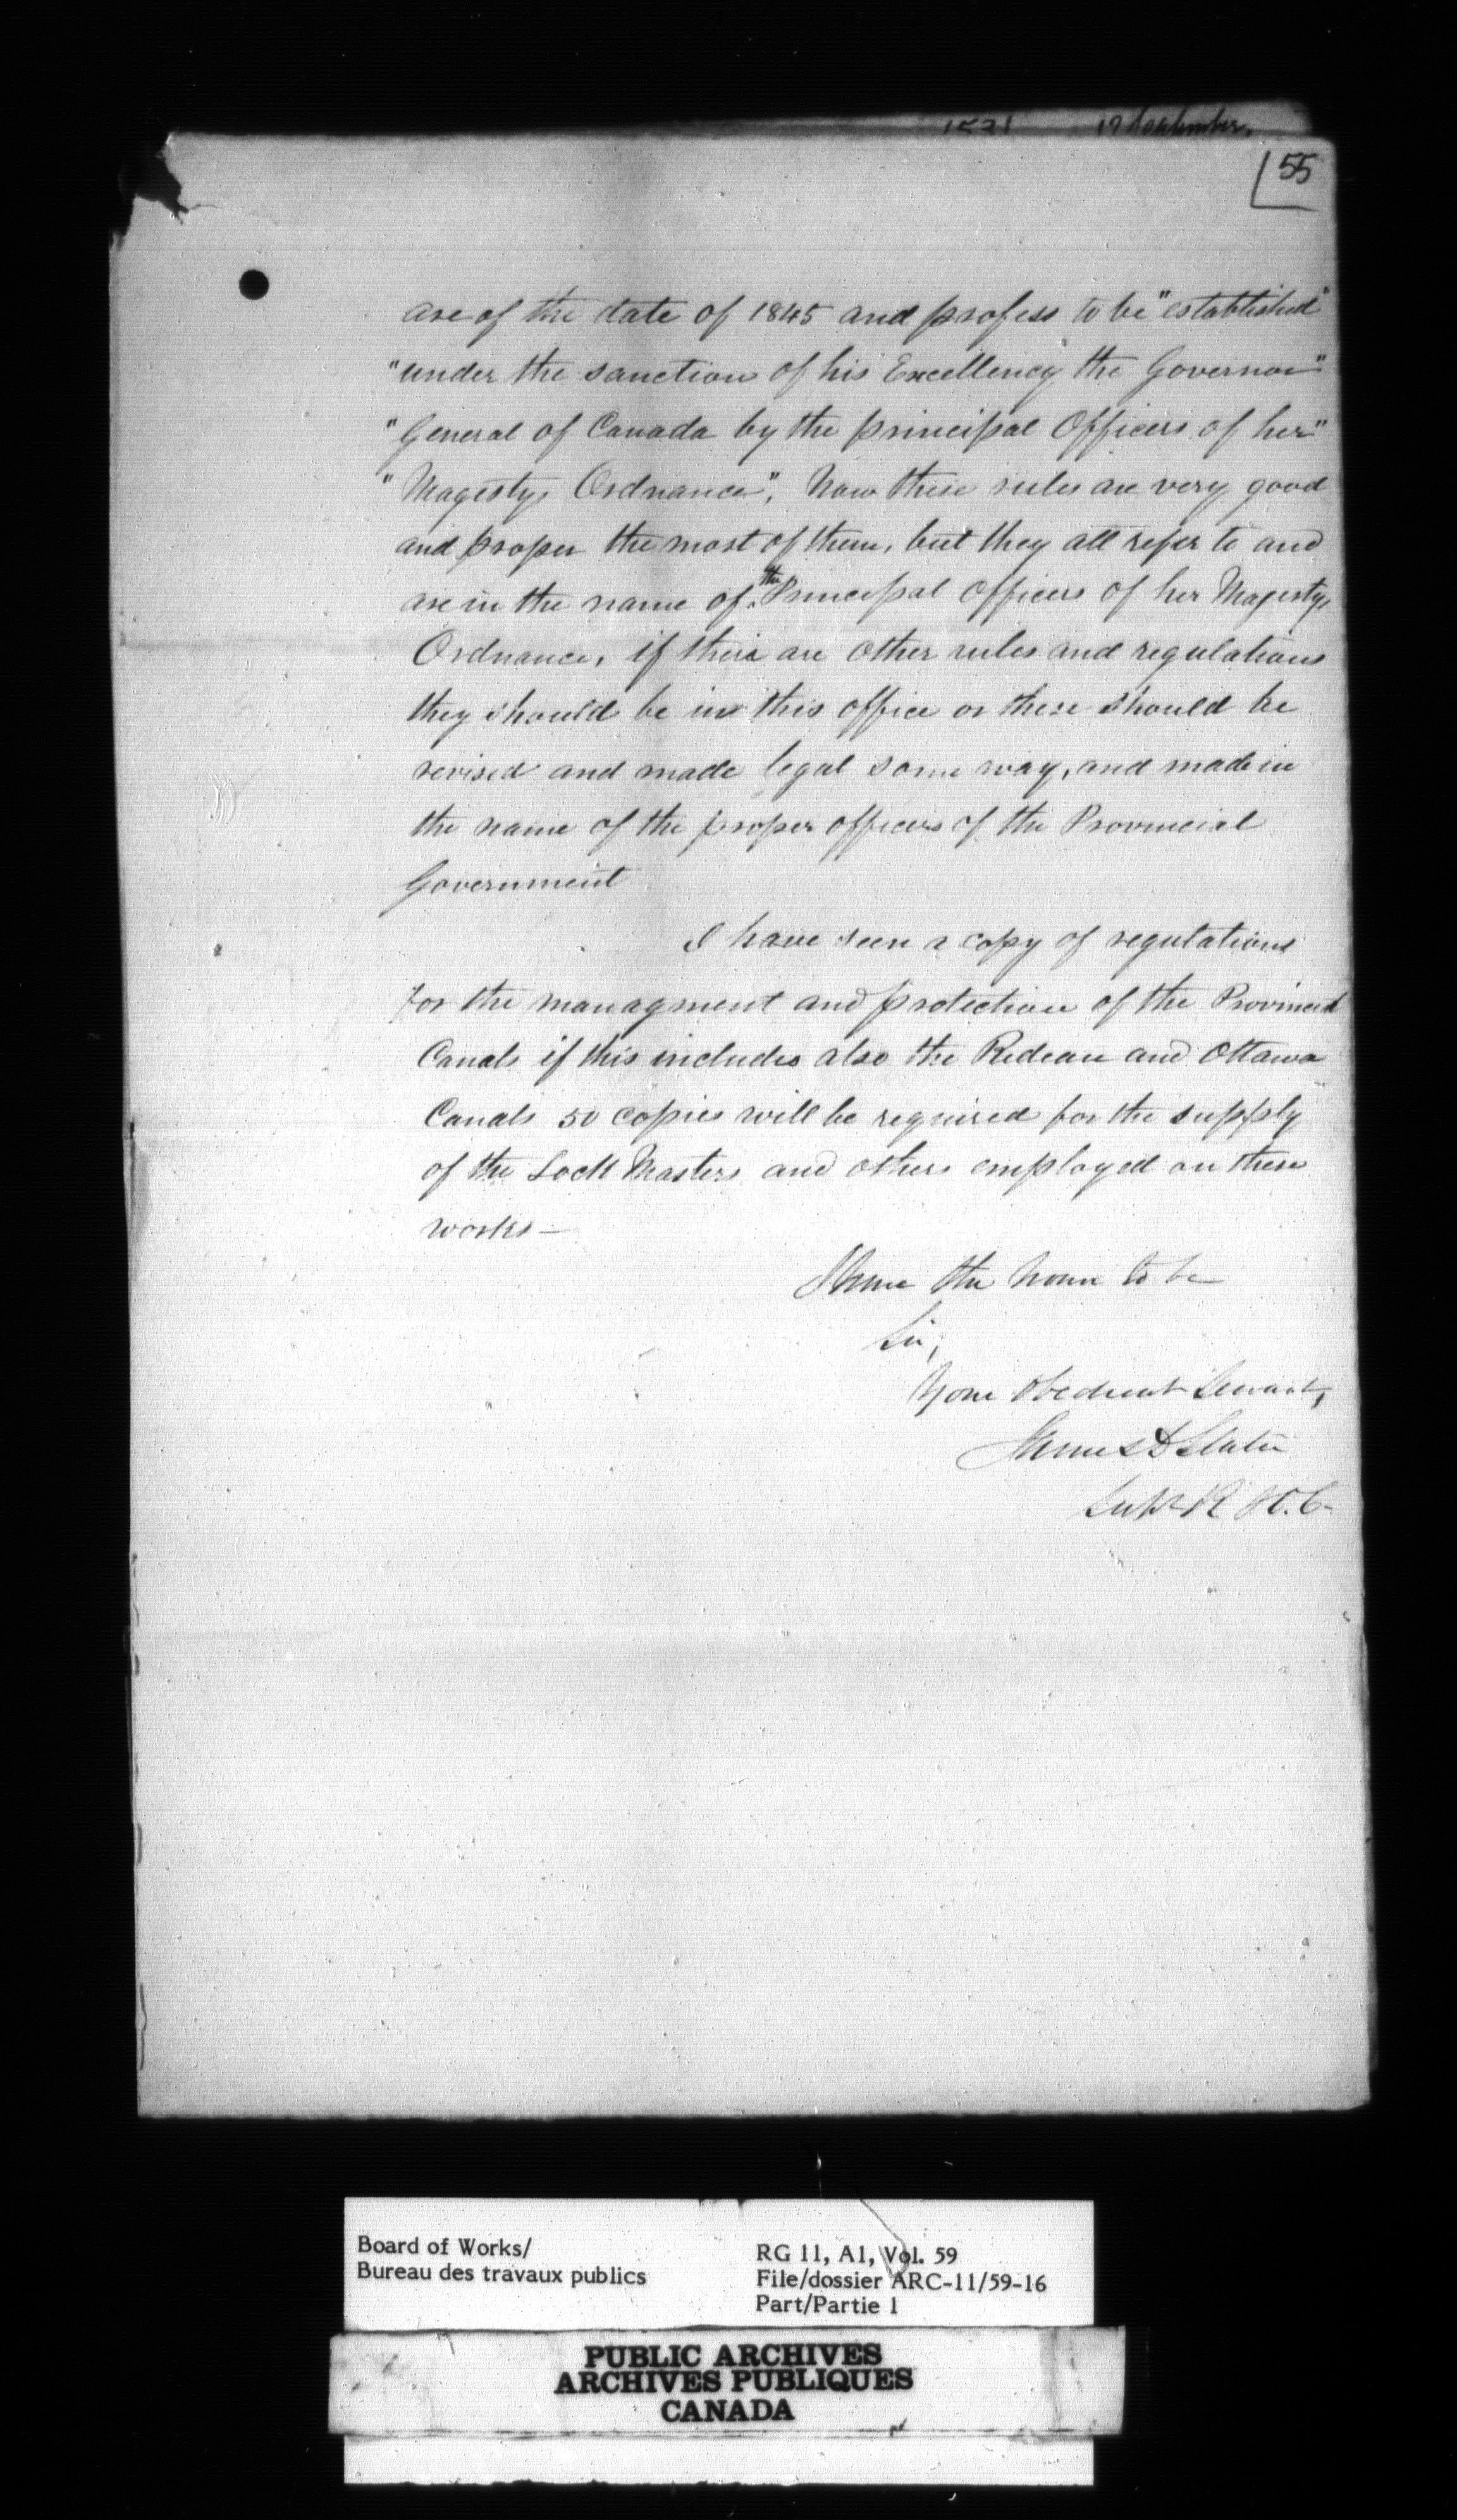 19 September.
55
are of the date of 1845 and profess to be "established"
"under the sanction of his Excellency the Governor"
"General of Canada by the principal Officers of her"
"Magestys Ordnance". Now these rules are very good
and proper the most of them, but they all refer to and
are in the name of the Principal Officers of her Magestys
Ordnance, if their are other rules and regulations
they should be in this office or these should be
revised and made legal some way, and made in
the name of the proper officers of the Provincial
Government
I have seen a copy of regulations
for the managment and protection of the Provincial
Canals if this includes also the Rideau and Ottawa
Canals 50 copies will be required for the supply
of the Lock Masters and others employed on these
works —
I have the honor to be
Sir,
Your obedient Servant,
James D Slater
Supt R & O. C.
Board of Works/
Bureau des travaux publics
RG 11, A1, Vol. 59
File/dossier ARC-11/59-16
Part/Partie 1
PUBLIC ARCHIVES
ARCHIVES PUBLIQUES
CANADA